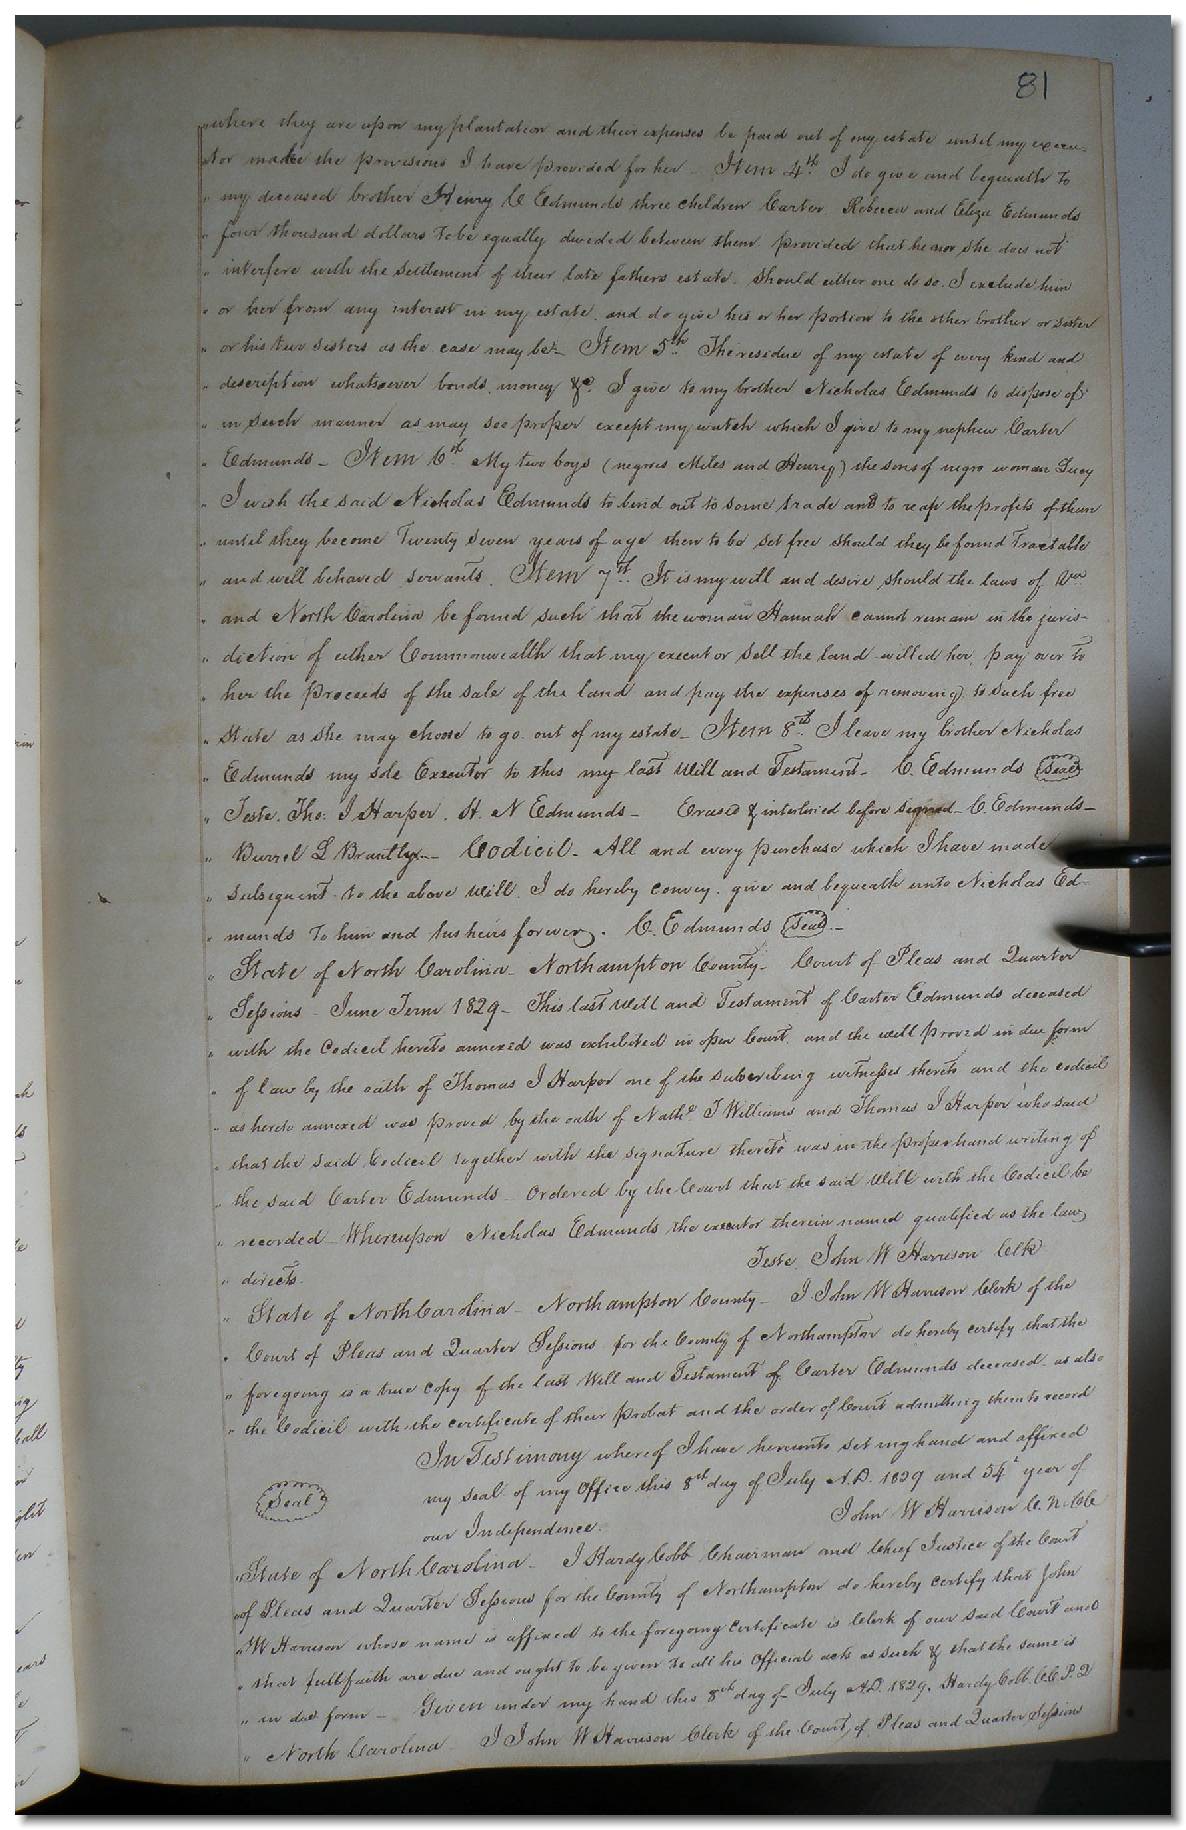 81
"where they are upon my plantation and their expenses be paid out of my estate until my execu-
"tor make the provisions I have provided for her – Item 4th. I do give and bequeath to
" my deceased brother Henry C Edmunds three children Carter, Rebecca and Eliza Edmunds
" four thousand dollars to be equally devided between them provided that he nor she does not
" interfere with the settlement of their late fathers estate. should either one do so. I exclude him
" or her from any interest in my estate. and do give his or her portion to the other brother or sister
" or his two sisters as the case may be – Item 5th. The residue of my estate of every kind and
" description whatsoever bonds, money &c. I give to my brother Nicholas Edmunds to dispose of
" in such manner as may see proper except my watch which I give to my nephew Carter
" Edmunds – Item 6th. My two boys (negroes Miles and Henry) the sons of negro woman Lucy
" I wish the said Nicholas Edmunds to bind out to some trade and to reap the profits of them
" until they become Twenty Seven years of age then to be set free should they be found Tractable
" and well behaved servants. Item 7th. It is my will and desire should the laws of Va
" and North Carolina be found such that the woman Hannah cannot remain in the juris-
" diction of either Commonwealth that my executor sell the land willed her, pay over to
" her the proceeds of the sale of the land and pay the expenses of removing to such free
" State as she may choose to go out of my estate – Item 8th. I leave my brother Nicholas
" Edmunds my sole Executor to this my last Will and Testament – C. Edmunds Seal
" Teste. Tho: I Harper. H. N Edmunds – Erased & interlined before signed – C. Edmunds –
" Burrel L Brantley – Codicil – All and every purchase which I have made
" subsequent to the above Will. I do hereby convey, give and bequeath unto Nicholas Ed-
" munds To him and his heirs forever. C. Edmunds Seal –
" State of North Carolina – Northampton County – Court of Pleas and Quarter
" Sessions – June Term 1829 – This last Will and Testament of Carter Edmunds deceased
" with the Codicil hereto annexed was exhibited in open Court. and the will proved in due form
" of law by the oath of Thomas I Harper one of the subscribing witnesses thereto and the codicil
" as hereto annexed was proved by the oath of Nathl. T Williams and Thomas I Harper who said
" that the said Codicil together with the signature thereto was in the proper hand writing of
" the said Carter Edmunds – Ordered by the Court that the said Will with the Codicil be
" recorded – Whereupon Nicholas Edmunds the executor therein named qualified as the law
" directs. Teste. John W Harrison Clk
" State of North Carolina – Northampton County – I John W Harrison Clerk of the
" Court of Pleas and Quarter Sessions for the County of Northampton do hereby certify that the
" foregoing is a true copy of the last Will and Testament of Carter Edmunds deceased. as also
" the Codicil with the certificate of their probat and the order of Court admitting them to record
In Testimony whereof I have hereunto set my hand and affixed
Seal my seal of my Office this 8th day of July A.D. 1829 and 54th year of
our Independence. John W Harrison C. N. Clk
" State of North Carolina – I Hardy Cobb Chairman and Chief Justice of the Court
" of Pleas and Quarter Sessions for the County of Northampton do hereby certify that John
" W Harrison whose name is affixed to the foregoing certificate is Clerk of our said Court and
" that full faith are due and ought to be given to all his Official acts as such & that the same is
" in due form – Given under my hand this 8th day of July A.D. 1829. Hardy Cobb. C.C.P.Q
" North Carolina – I John W Harrison Clerk of the Court of Pleas and Quarter Sessions